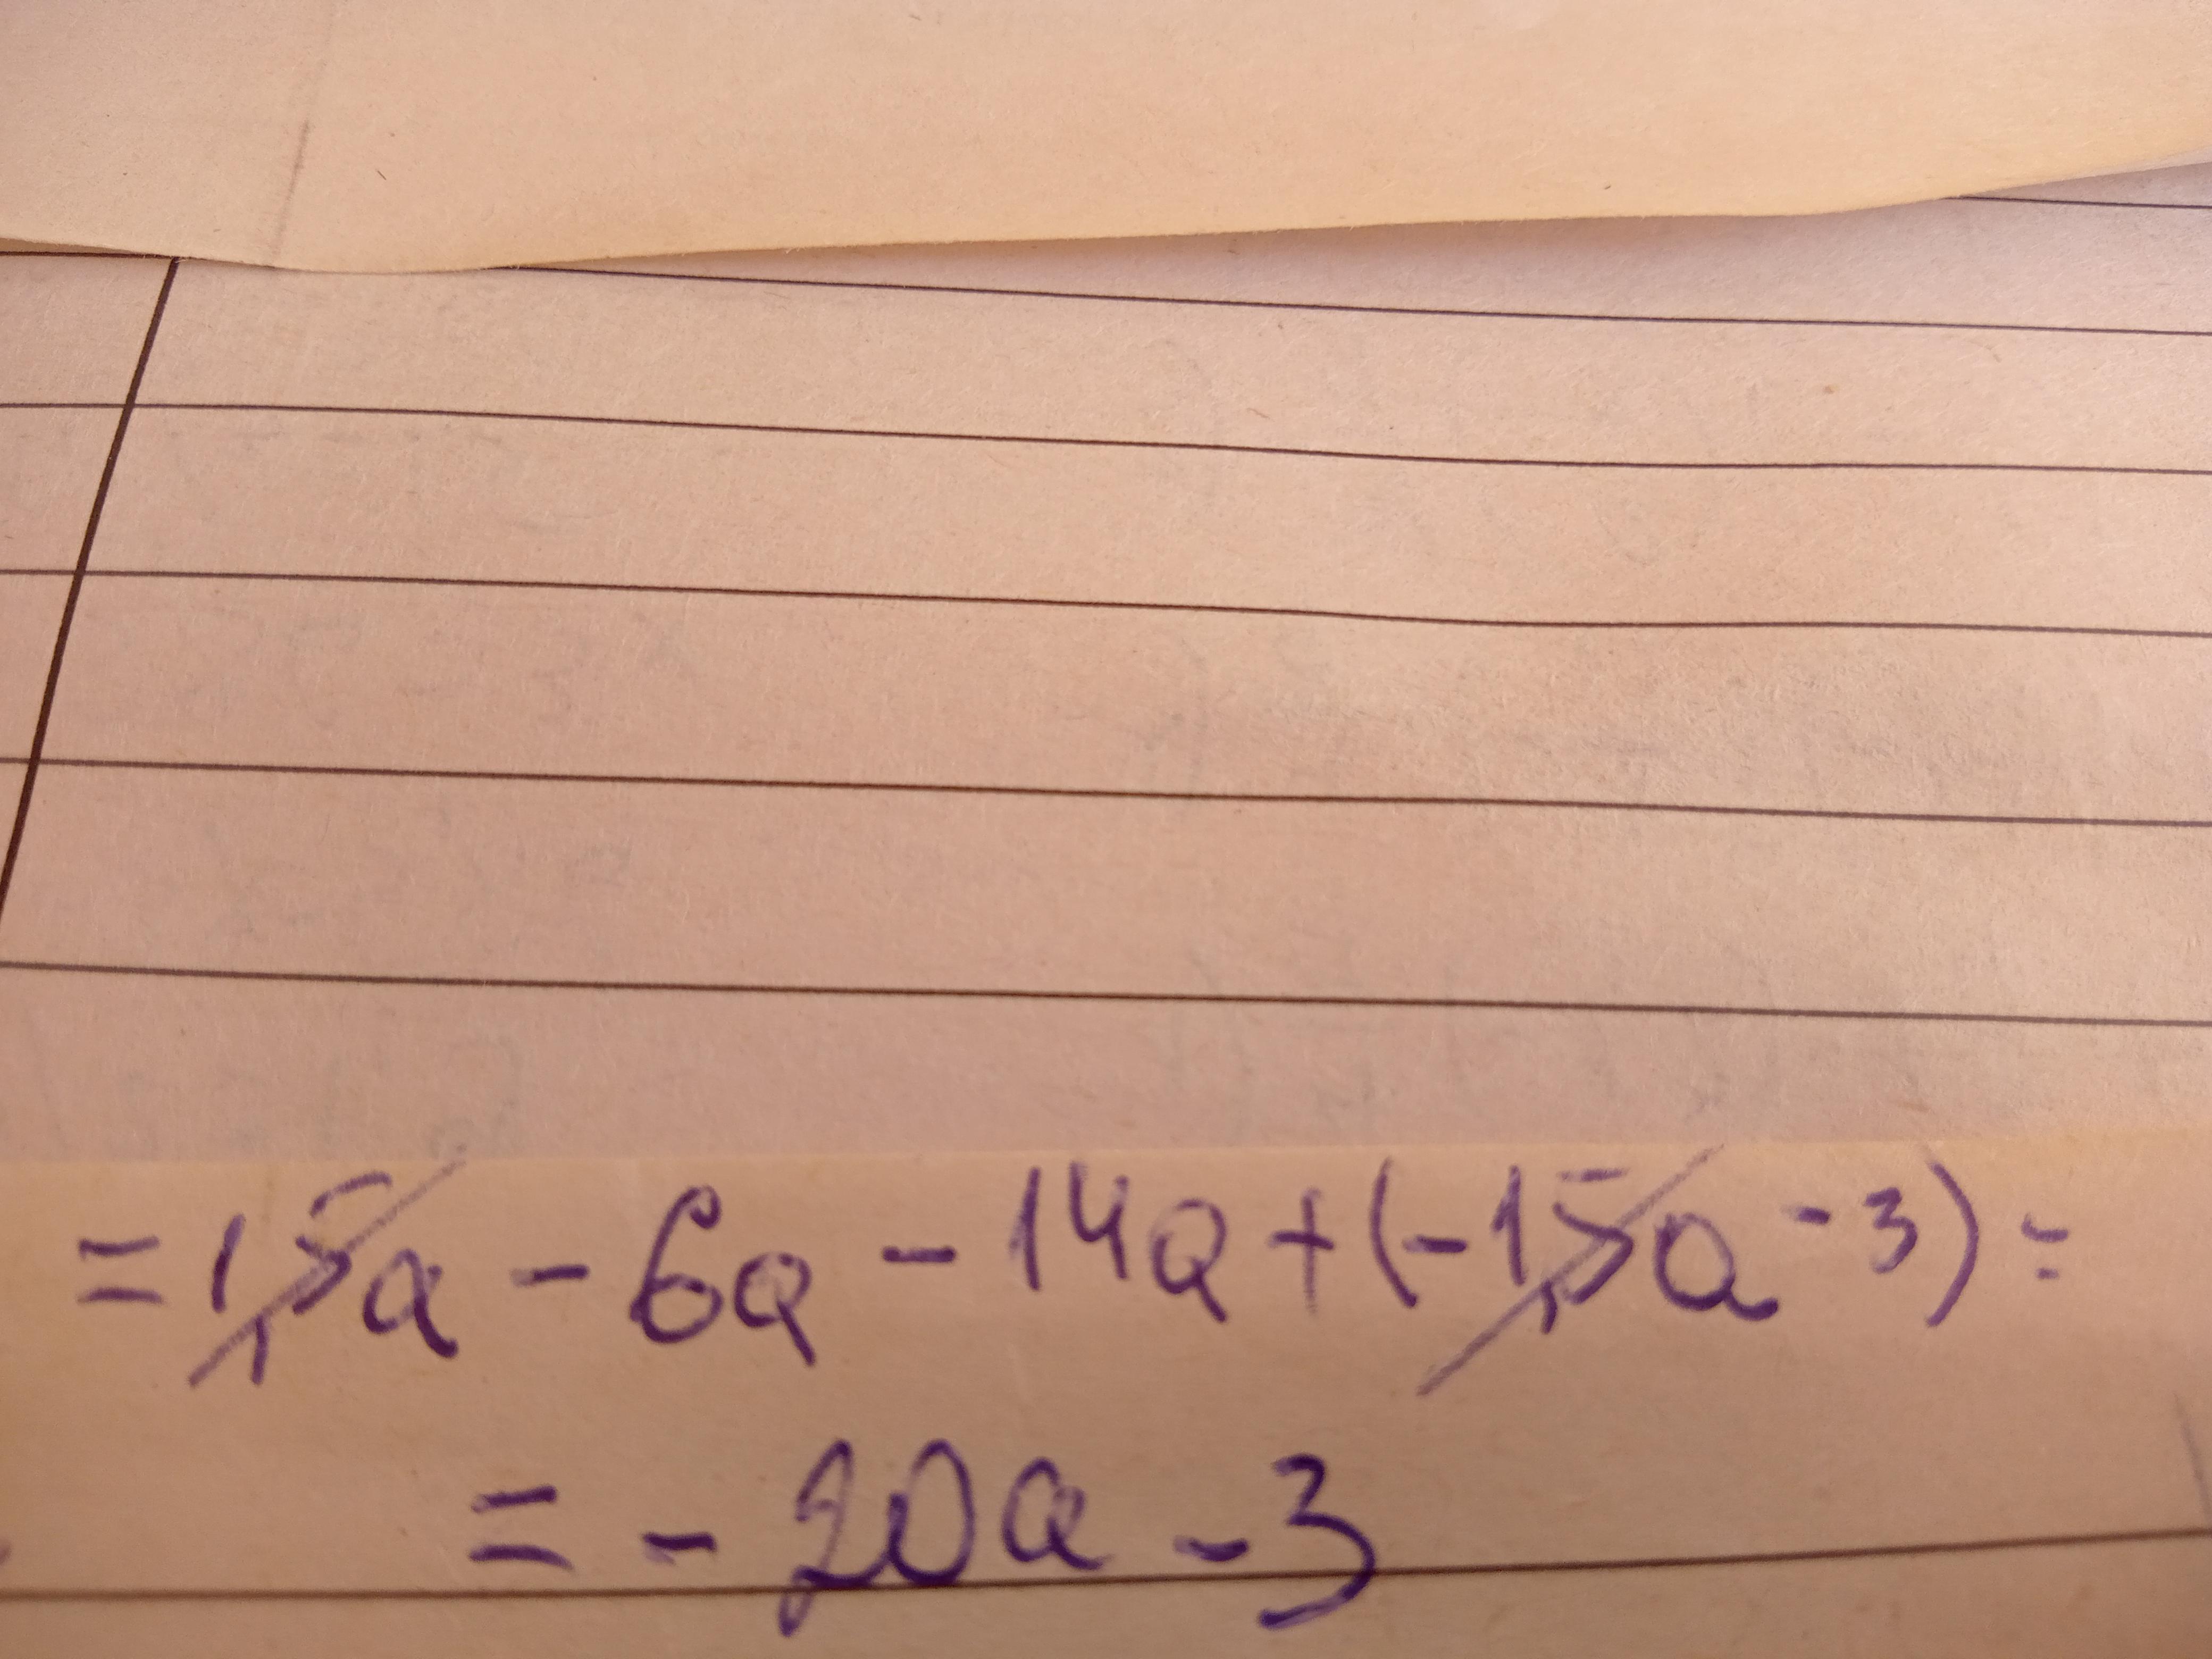 = 15a - 6a - 14a + (-15a - 3) =
= - 20a - 3